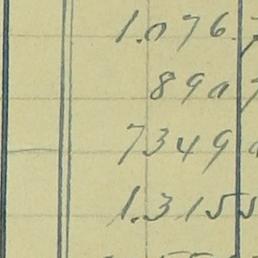 1.076
890
7349
1.3155